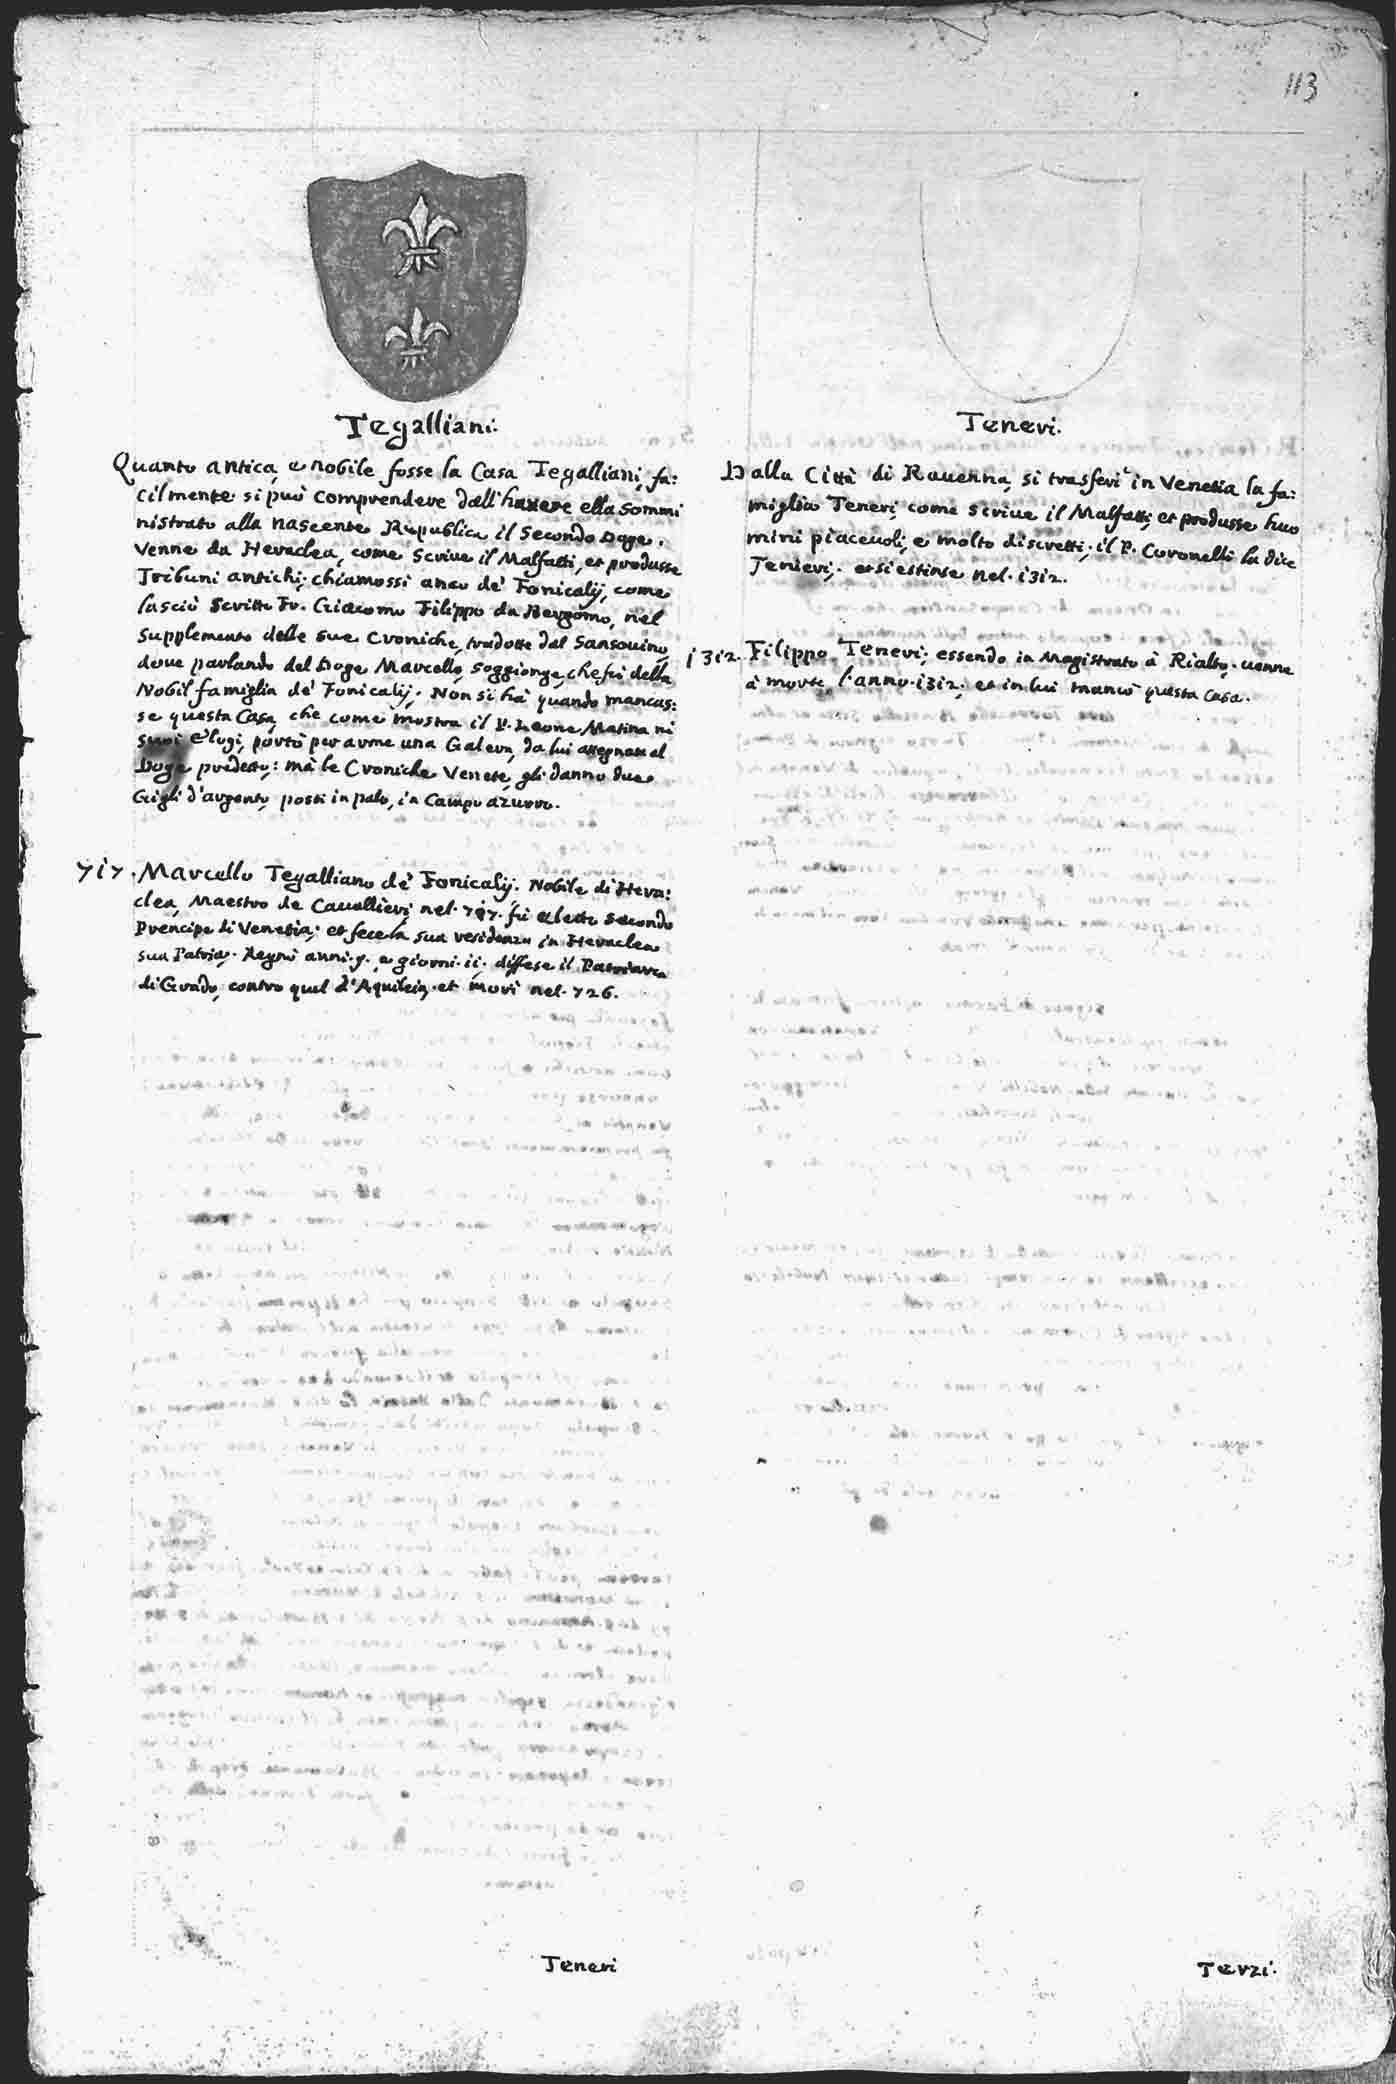 113
Tegalliani.
Quanto antica, e nobile fosse la Casa Tegalliani, fa:
cilmente si può comprendere dall'havere ella sommi
nistrato alla nascente Republica il Secondo Doge.
Venne da Heraclea, come scrive il Malfatti, et produsse
Tribuni antichi; chiamossi anco de' Fonicalij, come
lasciò scritto Fr. Giacomo Filippo da Bergomo, nel
supplemento delle sue Croniche, tradotte dal Sansouino,
doue parlando del Doge Marcello, soggionge, che fù della
Nobil famiglia de' Fonicalij. Non si hà quando mancas:
se questa Casa, che come mostra il P. Leone Matina ne
suoi Elogi, portò per arme una Galera, da lui assegnata al
Doge predetto; mà le Croniche Venete, gli danno due
Gigli d'argento, posti in palo, in Campo azurro.
717. Marcello Tegalliano de' Fonicalij. Nobile di Hera:
clea, Maestro de Cauallieri, nel. 717. fù eletto secondo
Prencipe di Venetia; et fece la sua residenza in Heraclea
sua Patria. Regnò anni. 9. e giorni. ii. diffese il Patriarca
di Grado, contro quel d'Aquileia, et morì nel. 726.
Teneri
Teneri.
Dalla Città di Rauenna, si trasferì in Venetia la fa:
miglia Teneri, come scriue il Malfatti, et produsse huo
mini piaceuoli, e molto discretti; il P. Coronelli la dice
Tenieri; et si estinse nel. 1312.
1312. Filippo Teneri; essendo in Magistrato à Rialto, uenne
à morte l'anno. 1312; et in lui mancò questa Casa.
Terzi.